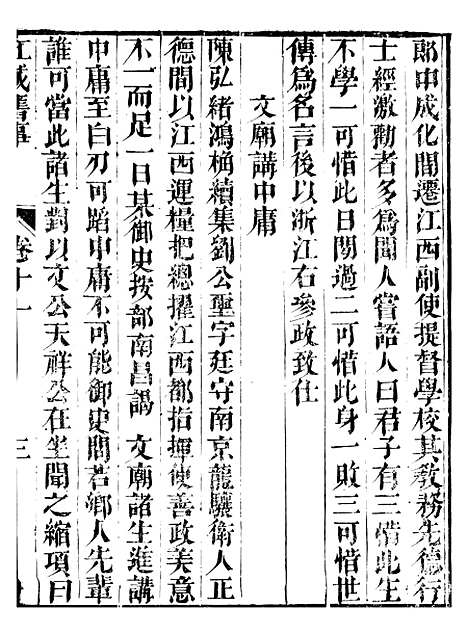 郎中成化間遷江西副使提督學校其敎務先德行
士經激勸者多爲聞人嘗語人曰君子有三惜此生
不學一可惜此日閒過二可惜此身一敗三可惜世
傳爲名言後以浙江右參政致仕
文廟講中庸
陳弘緒鴻桷續集劉公璽字廷守南京龍驤衛人正
德間以江西運糧把總擢江西都指揮使善政美意
不一而足一日某御史按部南昌謁文廟諸生進講
中庸至白刃可蹈中庸不可能御史問若鄉人先輩
誰可當此諸生對以文公天祥公在坐聞之縮項曰
江城舊事
卷十一
三